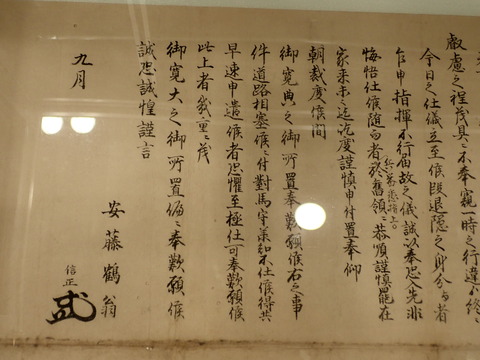 叡慮之程茂具ニ不奉窺一時之行違ハ終ニ
今日之仕儀立至候段退隠之身分与者
乍申指揮不行届故之儀誠以奉恐入先非
悔悟仕候随而者於舊領ニ恭順謹慎罷在
家来末々迄屹度謹慎申付置奉仰
朝裁度候間
御寛典之御所置奉歎願候右之事
件道路相塞候ニ付對馬守承知不仕候得共
早速申遣候者恐懼至極仕可奉歎願候
此上者幾重ニ茂
御寛大之御所置偏ニ奉歎願候
誠恐誠惶謹言
九月
安藤鶴翁
信正